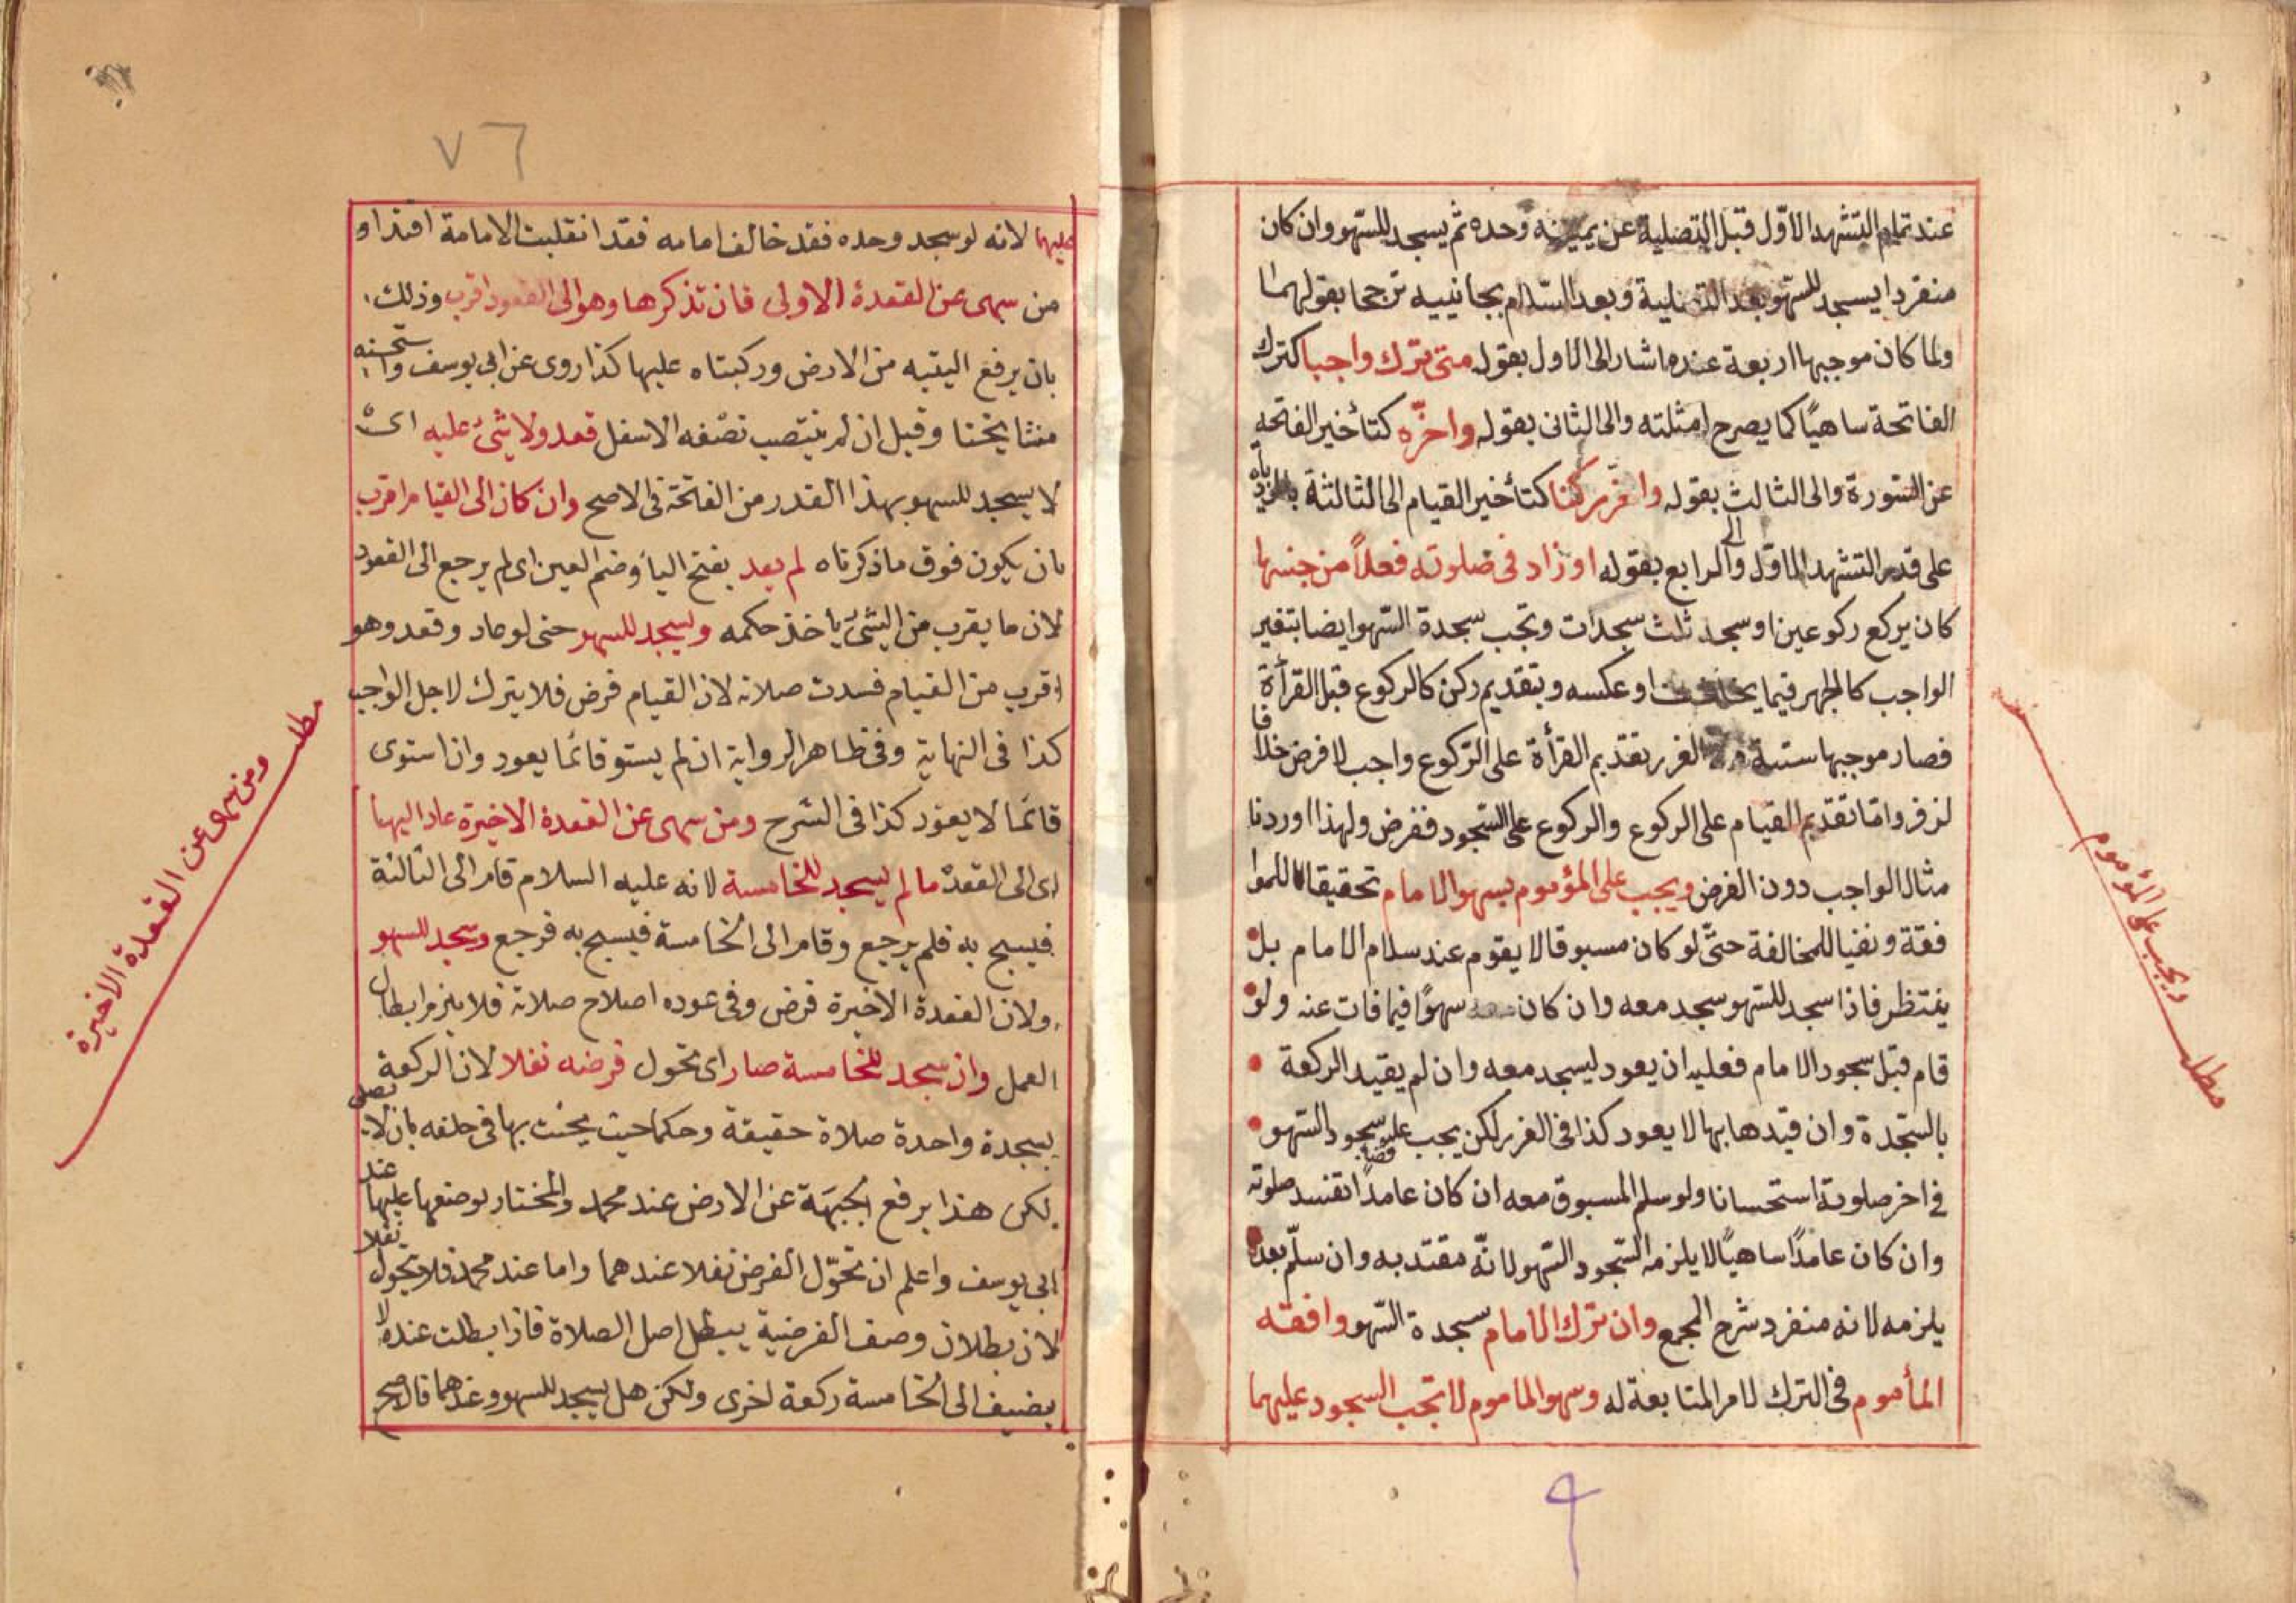 عند تمام التشهد الاوّل قبل التصلية عن يمينه وحده ثم يسجد للسّهو وان كان
منفردا يسجد للسّهو بعد التصلية وبعد السّلام بجانبيه ترجحا بقولهما
ولما كان موجبها اربعة عنده اشار الى الاول بقوله متى ترك واجبا كترك
الفاتحة ساهيًا كما يصرح امثلته والى الثانى بقوله واخّره كتأخير الفاتحة
عن السّورة والى الثالث بقوله واخّر ركنا كتأخير القيام الى الثالثة بالزيادة
على قدر التشهد الاوّل والى الرابع بقوله او زاد فى صلوته فعلاً من جنسها
كان يركع ركوعين او سجد ثلث سجدات وتجب سجدة السّهو ايضا بتغير
الواجب كالجهر فيما يخافت او عكسه وبتقديم ركن كالركوع قبل القرأة
فصار موجبها ستة الغرر بتقديم القرأة على الرّكوع واجب لا فرض خلافا
لزفر وامّا تقديم القيام على الركوع والركوع على السّجود ففرض ولهذا اوردنا
مثال الواجب دون الفرض ويجب على المؤموم بسهو الامام تحقيقا للموا
فقة ونفيا للمخالفة حتّى لو كان مسبوقا لا يقوم عند سلام الامام بل
ينتظر فاذا سجد للسّهو سجد معه وان كان سهوًا فيما فات عنه ولو
قام قبل سجود الامام فعليه ان يعود ليسجد معه وان لم يقيد الركعة
بالسّجدة وان قيدها بها لا يعود كذا فى الغرر لكن يجب عليه سجود السّهو
فى اخر صلوته استحسانا ولو سلم المسبوق معه ان كان عامدًا تفسد صلوته
وان كان عامدًا ساهيًا لا يلزمه السّجود السّهو لانّه مقتد به وان سلّم بعده
يلزمه لانه منفرد شرح المجمع وان ترك الامام سجدة السّهو وافقه
المأموم فى الترك لامر المتابعة له وسهو الماموم لا تجب السجود عليهما
مطلب ويجب على المؤموم
٧٦
عليهما لانه لو سجد وحده فقد خالف امامه فقد انقلبت الامامة اقتداء و
من سهى عن القعدة الاولى فان تذكرها وهو الى القعود اقرب وذلك
بان يرفع اليتيه من الارض وركبتاه عليها كذا روى عن ابى يوسف واستحسنه
مشايخنا وقيل ان لم ينتصب نصفه الاسفل قعد ولا شئ عليه اى
لا يسجد للسهو بهذا القدر من الفاتحة فى الاصح وان كان الى القيام اقرب
بان يكون فوق ما ذكرناه لم يعد بفتح الياء وضم العين اى لم يرجع الى القعود
لان ما يقرب من الشئ يأخذ حكمه ويسجد للسهو حتى لو عاد وقعد وهو
اقرب من القيام فسدت صلاته لان القيام فرض فلا يترك لاجل الواجب
كذا فى النهاية وفى ظاهر الرواية ان لم يستو قائما يعود وان استوى
قائما لا يعود كذا فى الشرح ومن سهى عن القعدة الاخيرة عاد اليها
اى الى القعدة ما لم يسجد للخامسة لانه عليه السلام قام الى الثالثة
فيسبح به فلم يرجع وقام الى الخامسة فيسبح به فرجع وسجد للسهو
ولان القعدة الاخيرة فرض وفى عوده اصلاح صلاته فلا يلزم ابطال
العمل وان سجد للخامسة صار اى تحول فرضه نفلا لان الركعة
بسجدة واحدة صلاة حقيقة وحكما حيث يحنث بها فى حلفه بان لا يصلى
لكن هذا برفع الجبهَة عن الارض عند محمد والمختار بوضعها عليها عند
ابى يوسف واعلم ان تحوّل الفرض نفلا عندهما واما عند محمد فلا يتحول نفلا
لان بطلان وصف الفرضية يبطل اصل الصلاة فاذا بطلت عنده لا
يضيف الى الخامسة ركعة اخرى ولكن هل يسجد للسهو وعندهما قال صح
مطلب ومن سهى عن القعدة الاخيرة